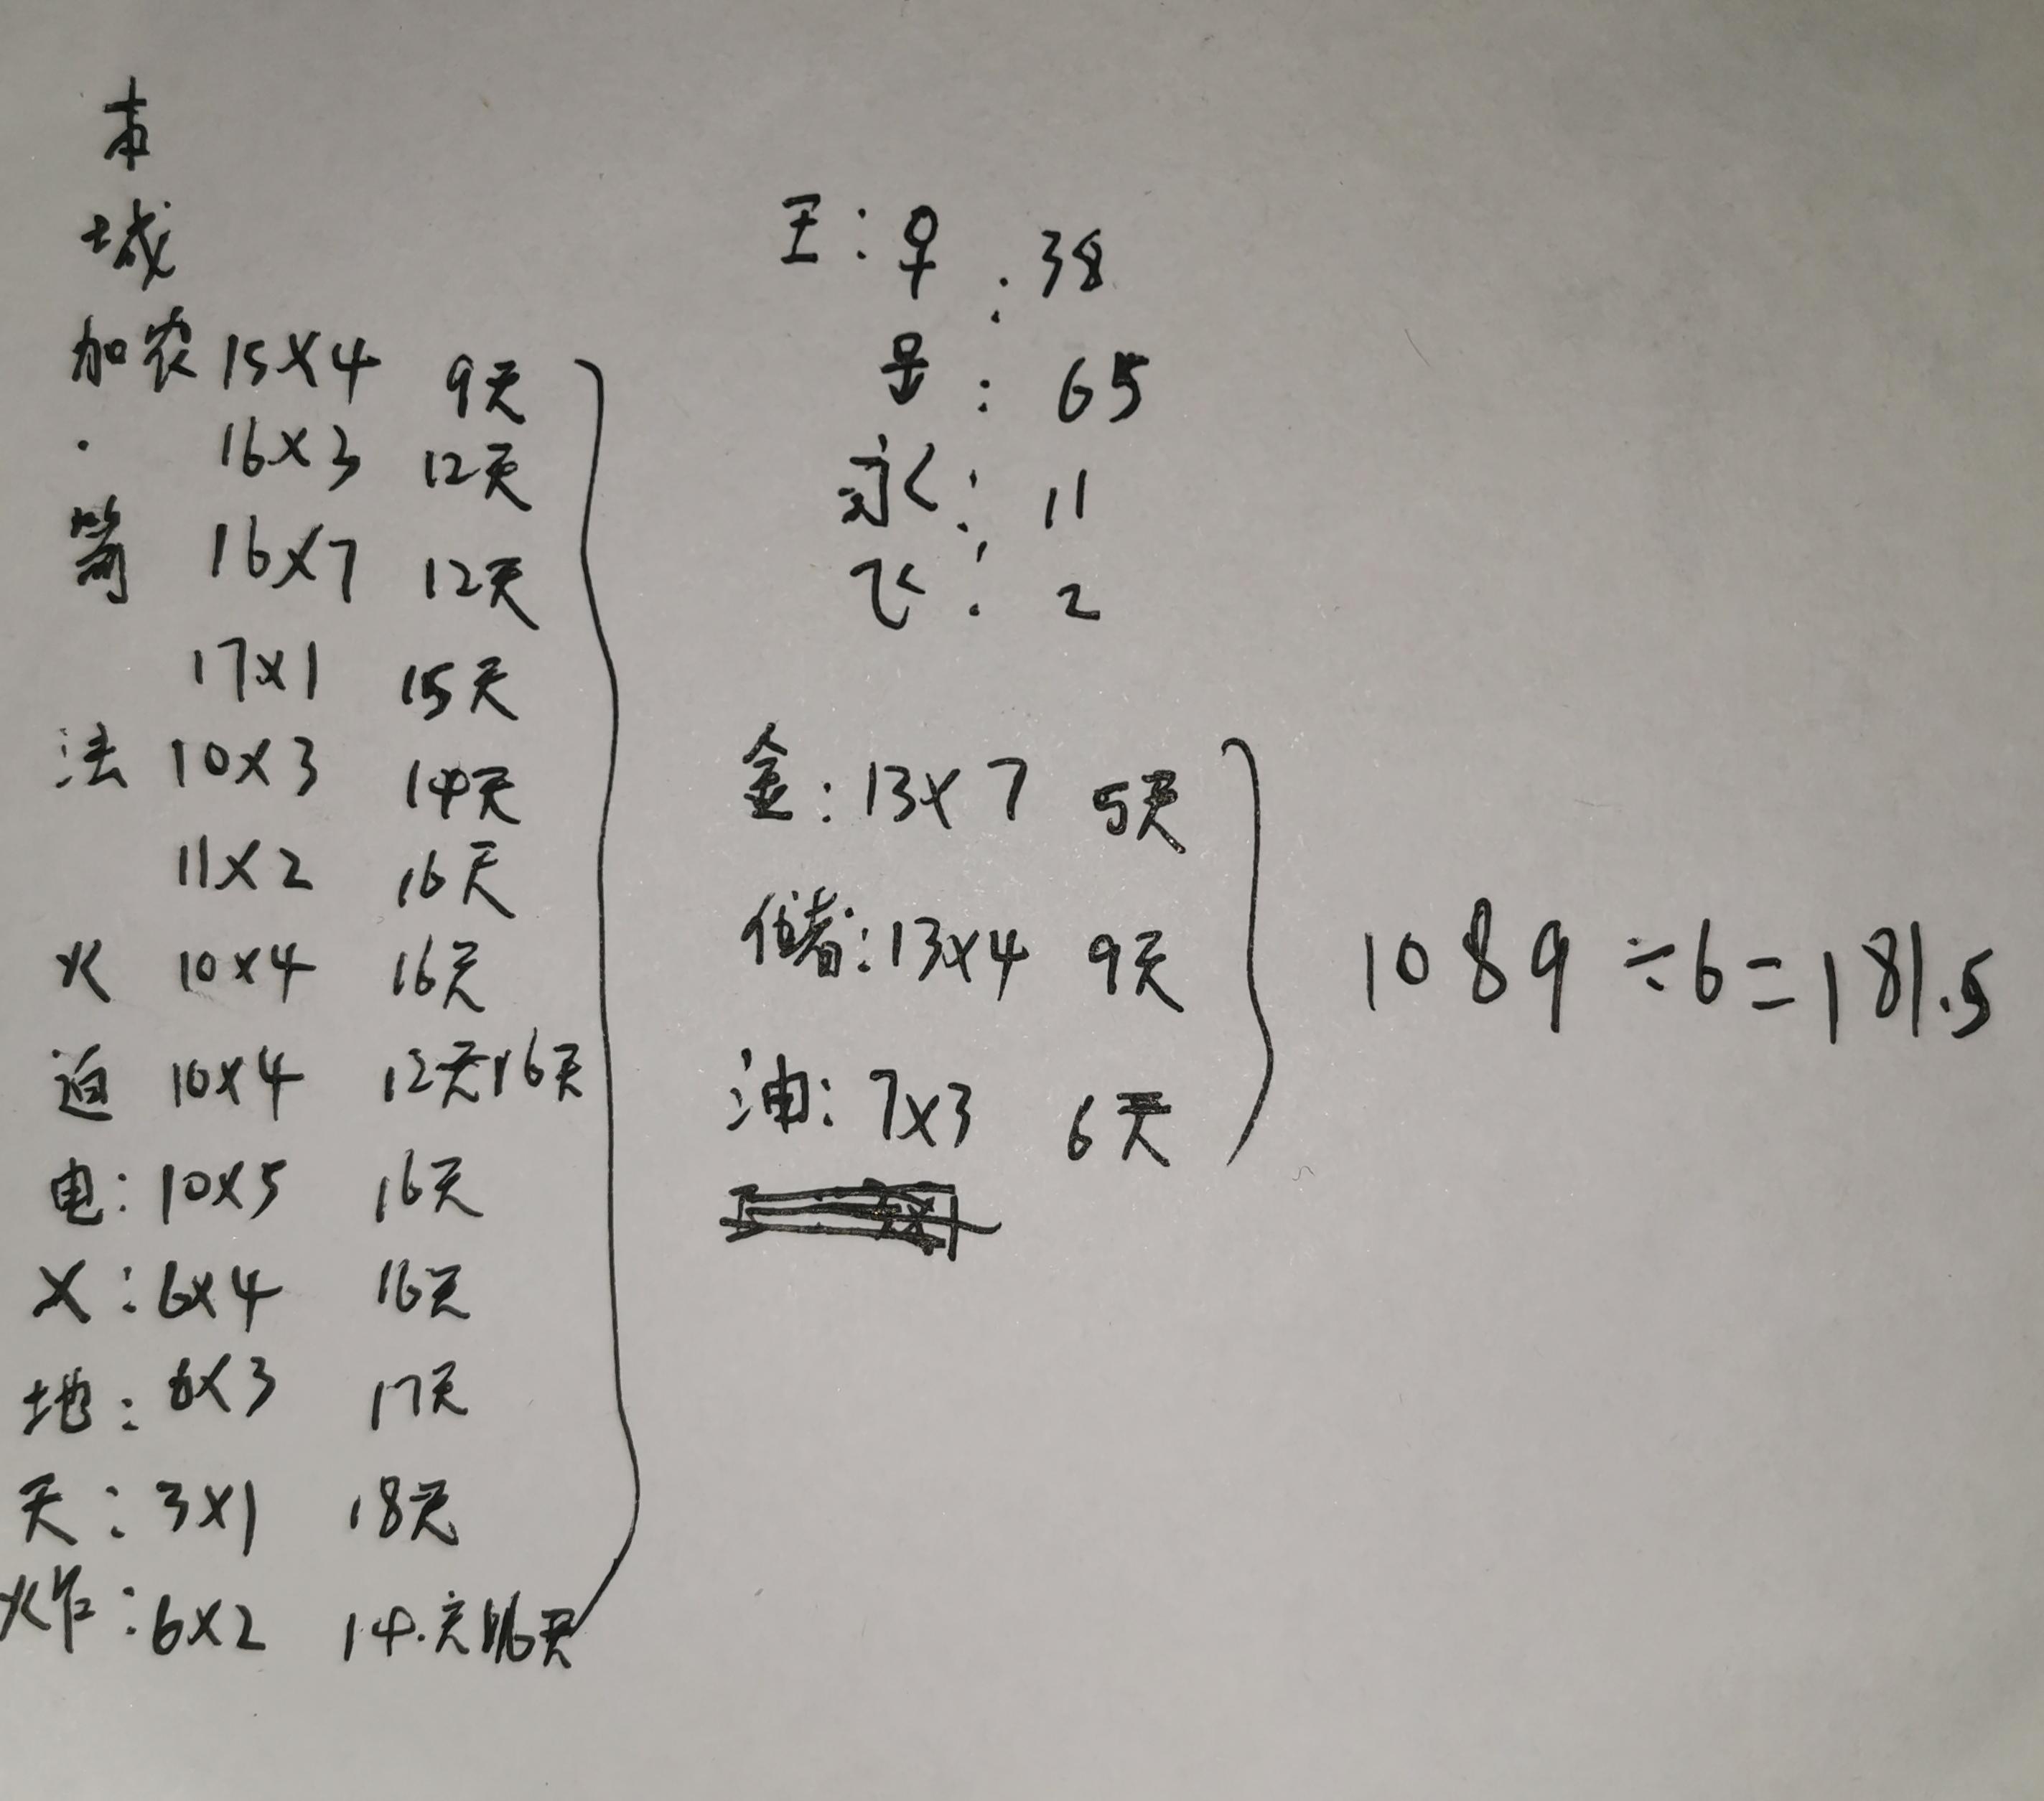 本
城
加农 15×4 9天
· 16×3 12天
箭 16×7 12天
17×1 15天
法 10×3 14天
11×2 16天
火 10×4 16天
迫 10×4 12天 16天
电: 10×5 16天
X: 6×4 16天
地: 6×3 17天
天: 3×1 18天
炸: 6×2 14天 16天
王: ♀: 38
: 65
永: 11
飞: 2
金: 13×7 5天
储: 13×4 9天
油: 7×3 6天
1089÷6=181.5